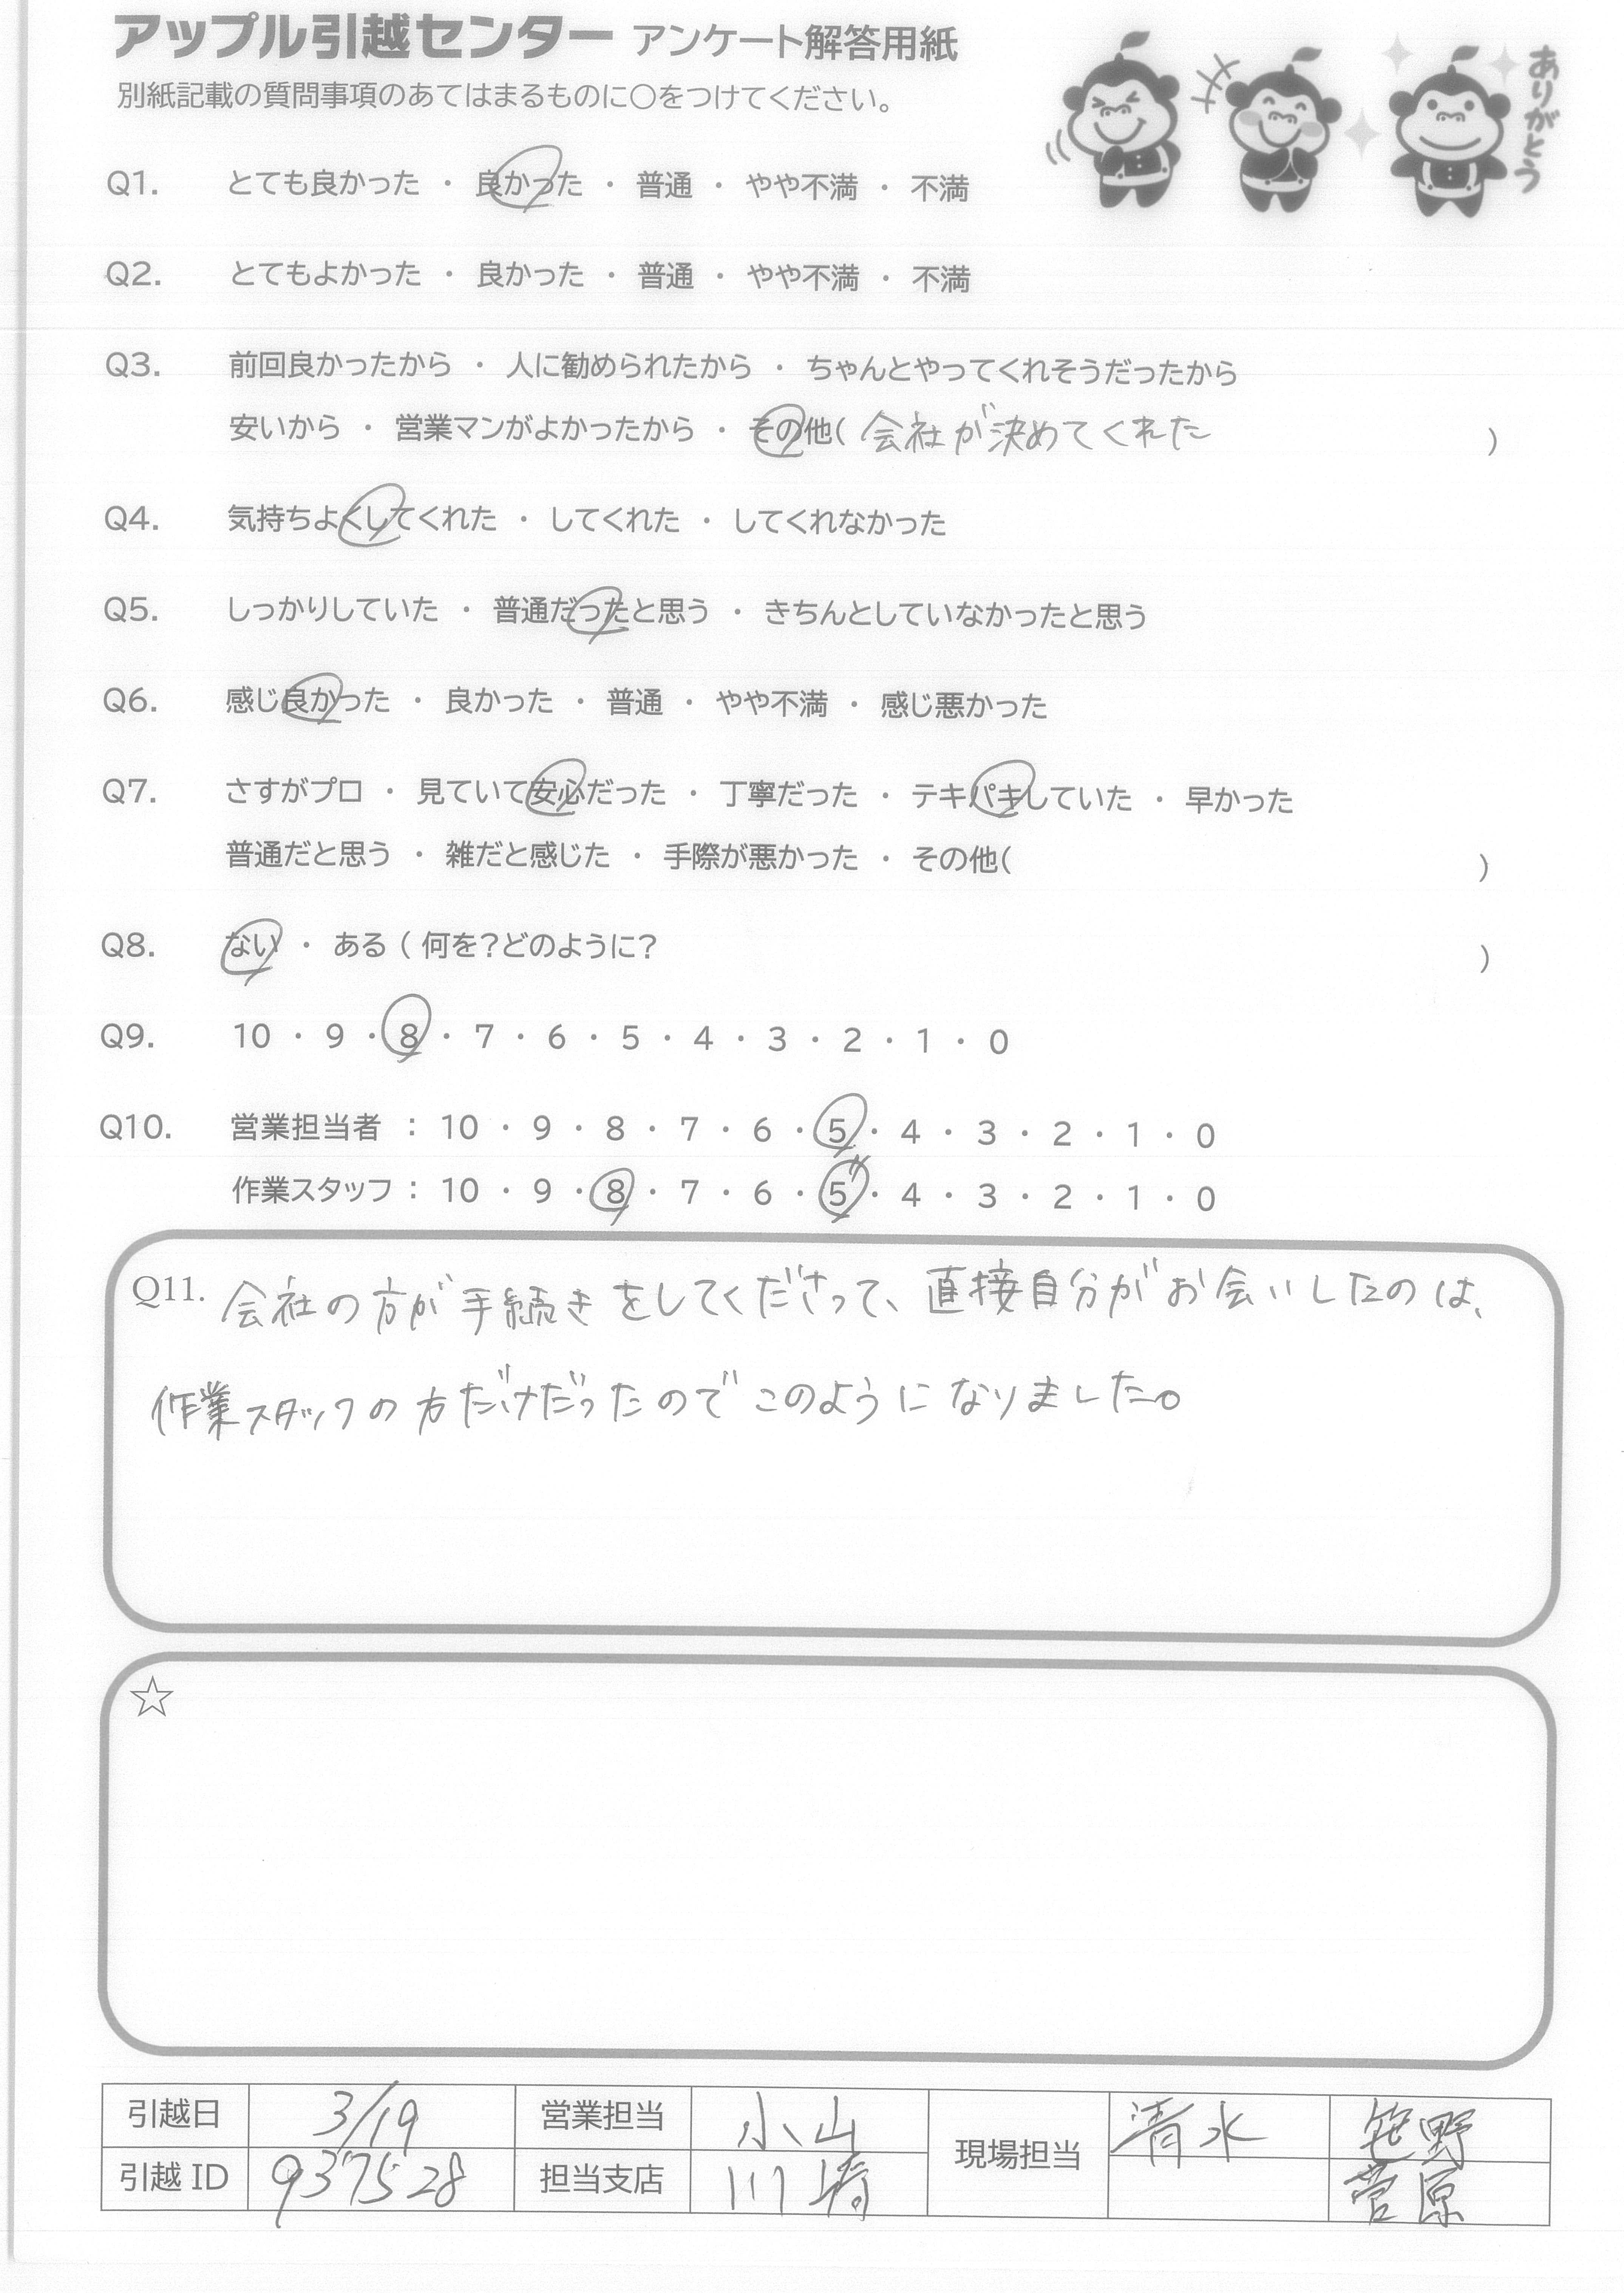 アップル引越センター アンケート解答用紙
別紙記載の質問事項のあてはまるものに○をつけてください。
ありがとう
Q1. とても良かった ・ 良かった ・ 普通 ・ やや不満 ・ 不満
Q2. とてもよかった ・ 良かった ・ 普通 ・ やや不満 ・ 不満
Q3. 前回良かったから ・ 人に勧められたから ・ ちゃんとやってくれそうだったから
安いから ・ 営業マンがよかったから ・ その他( 会社が決めてくれた )
Q4. 気持ちよくしてくれた ・ してくれた ・ してくれなかった
Q5. しっかりしていた ・ 普通だったと思う ・ きちんとしていなかったと思う
Q6. 感じ良かった ・ 良かった ・ 普通 ・ やや不満 ・ 感じ悪かった
Q7. さすがプロ ・ 見ていて安心だった ・ 丁寧だった ・ テキパキしていた ・ 早かった
普通だと思う ・ 雑だと感じた ・ 手際が悪かった ・ その他( )
Q8. ない ・ ある ( 何を?どのように? )
Q9. 10 ・ 9 ・ 8 ・ 7 ・ 6 ・ 5 ・ 4 ・ 3 ・ 2 ・ 1 ・ 0
Q10. 営業担当者 : 10 ・ 9 ・ 8 ・ 7 ・ 6 ・ 5 ・ 4 ・ 3 ・ 2 ・ 1 ・ 0
作業スタッフ : 10 ・ 9 ・ 8 ・ 7 ・ 6 ・ 5 ・ 4 ・ 3 ・ 2 ・ 1 ・ 0
Q11. 会社の方が手続きをしてくださって、直接自分がお会いしたのは、
作業スタッフの方だけだったのでこのようになりました。
☆
引越日 3/19 営業担当 小山 現場担当 清水 笹野
引越 ID 937528 担当支店 川崎 菅原